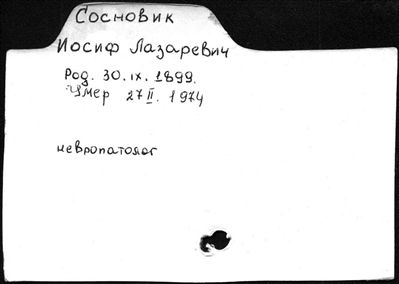 Сосновик
Иосиф Лазаревич
Род. 30.IX.1899.
Умер 27 II. 1974
невропатолог